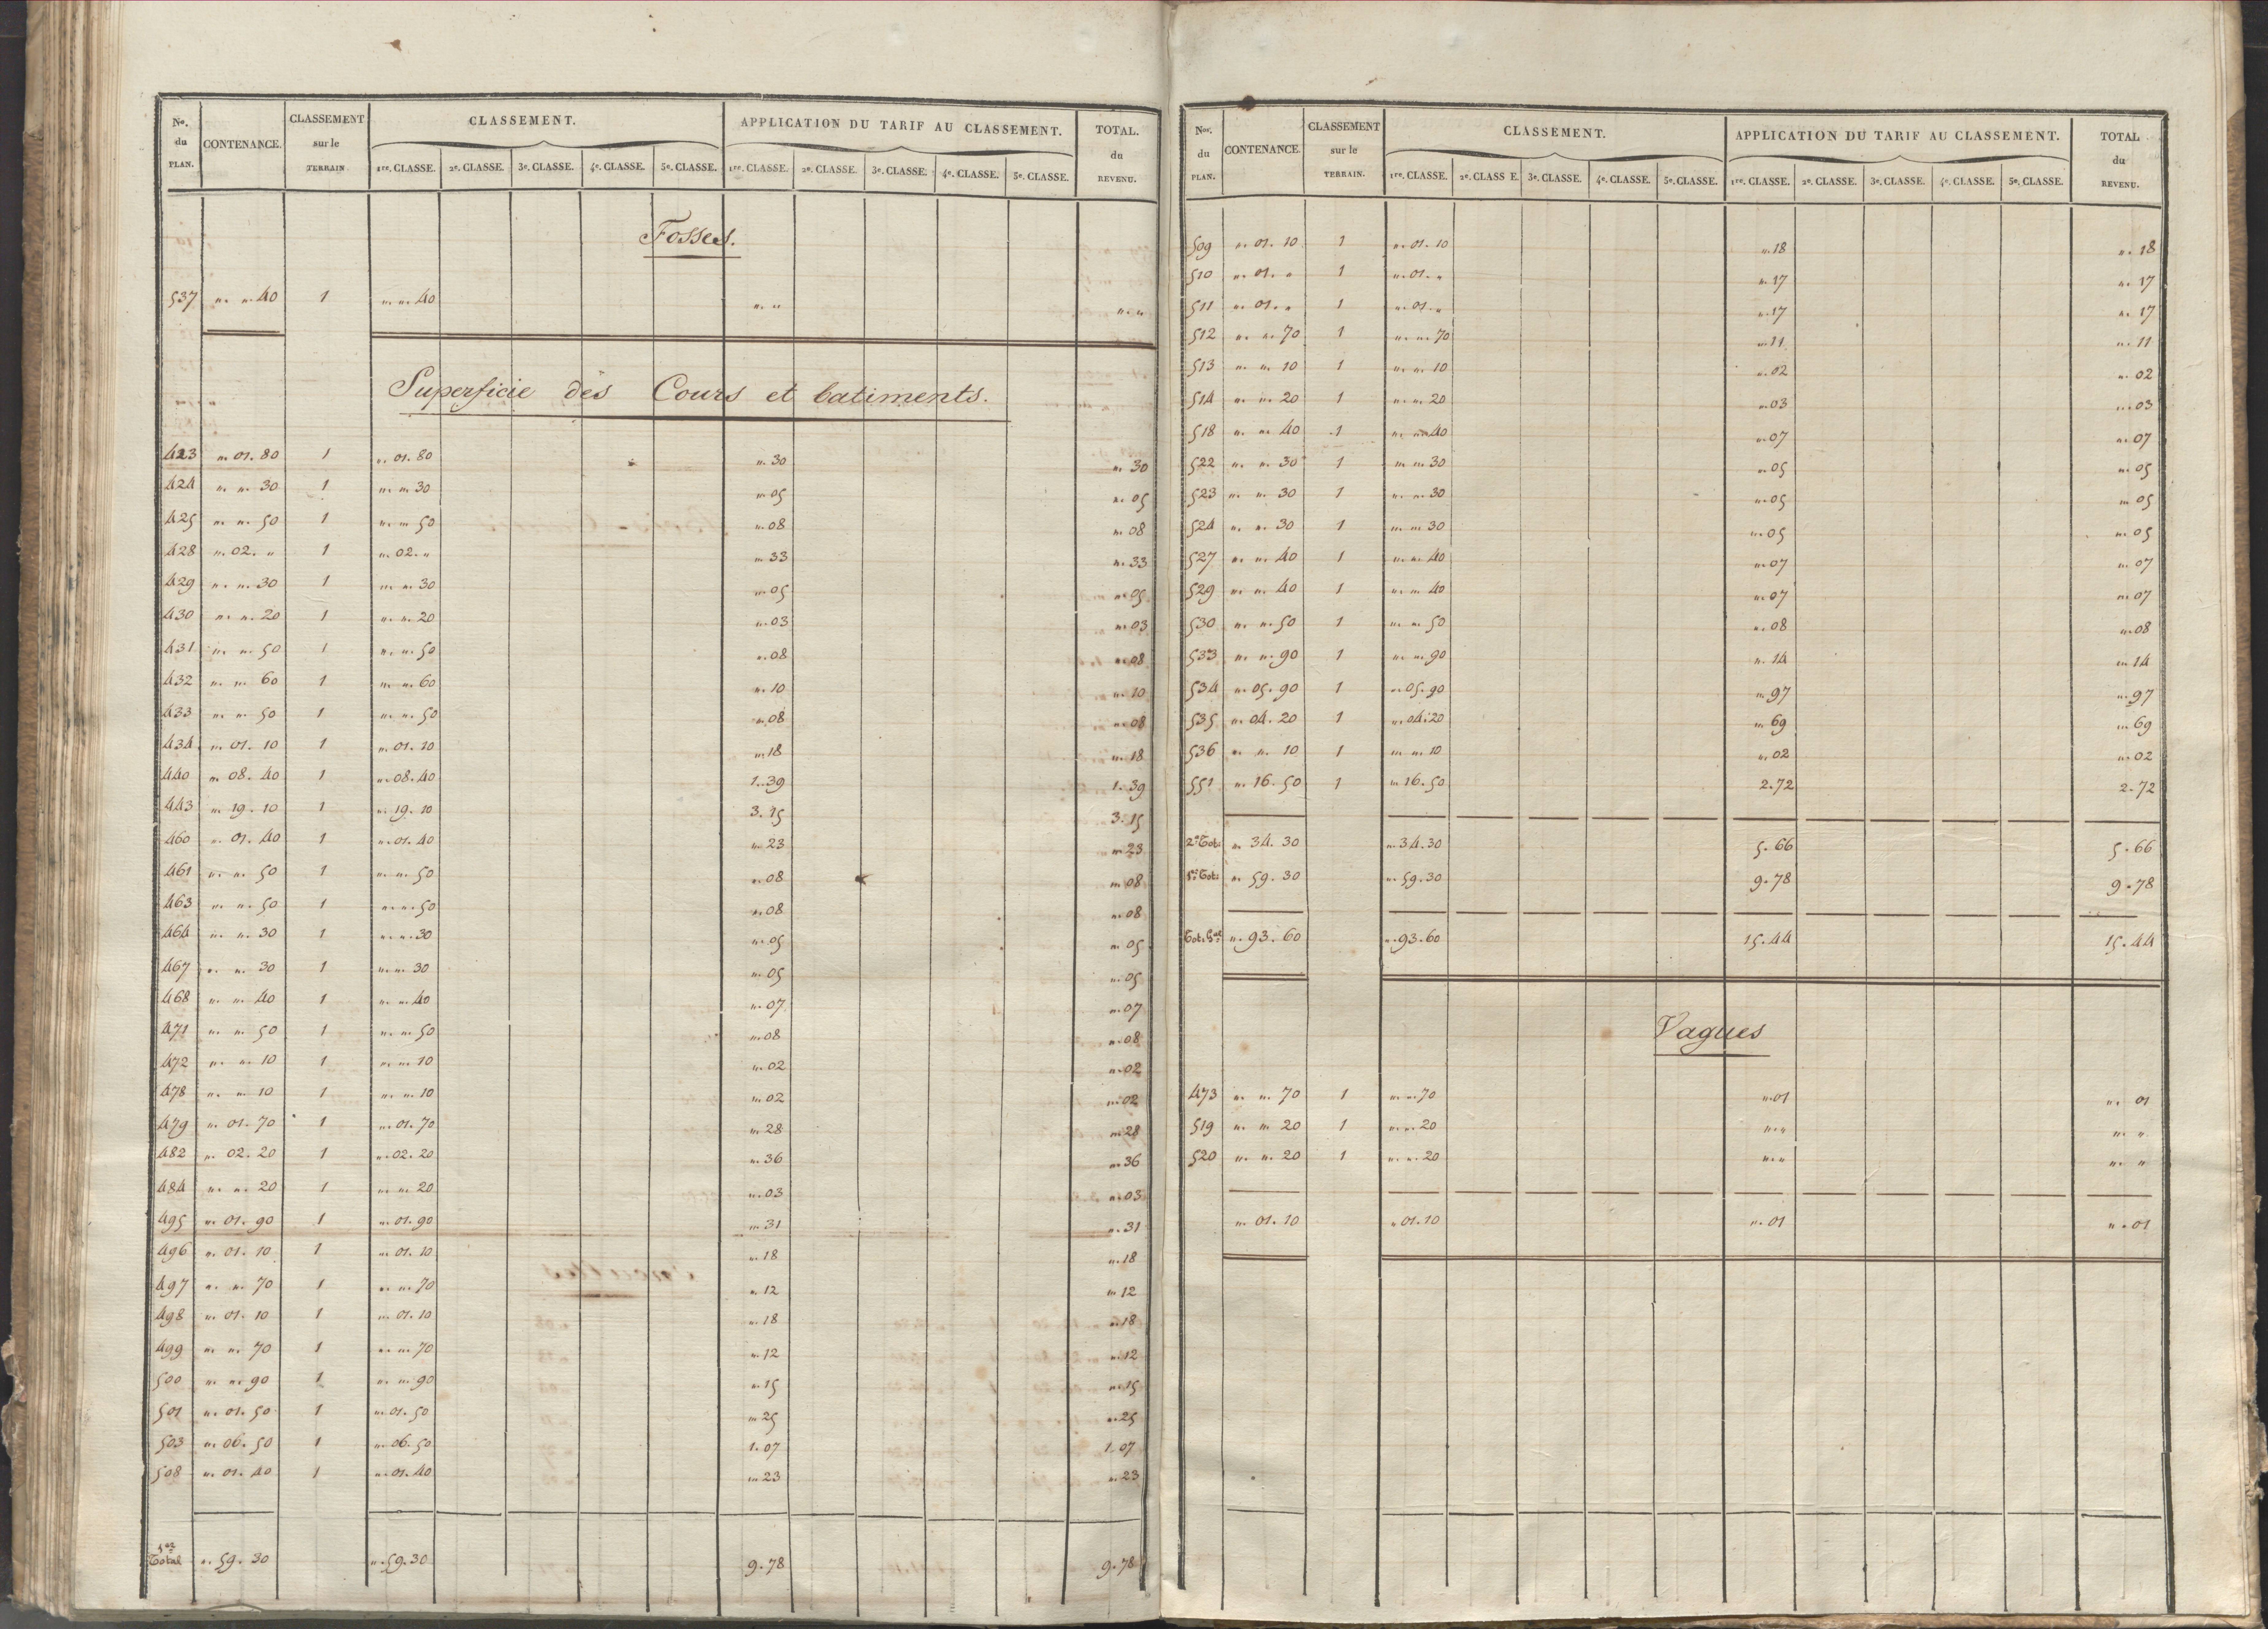 No. du PLAN. CONTENANCE. CLASSEMENT sur le TERRAIN CLASSEMENT. APPLICATION DU TARIF AU CLASSEMENT. TOTAL. du REVENU.
1re. CLASSE. 2e. CLASSE. 3e. CLASSE. 4e. CLASSE. 5e. CLASSE. 1re. CLASSE. 2e. CLASSE. 3e. CLASSE. 4e. CLASSE. 5e. CLASSE.
Fossés.
537 „. „. 40 1 „. „. 40 „. „ „. „
Superficie des Cours et batiments.
423 „. 01. 80 1 „. 01. 80 „. 30 „. 30
424 „. „. 30 1 „. „. 30 „. 05 „. 05
425 „. „. 50 1 „. „. 50 „. 08 „. 08
428 „. 02. „ 1 „. 02. „ „. 33 „. 33
429 „. „. 30 1 „. „. 30 „. 05 „. 05
430 „. „. 20 1 „. „. 20 „. 03 „. 03
431 „. „. 50 1 „. „. 50 „. 08 „. 08
432 „. „. 60 1 „. „. 60 „. 10 „. 10
433 „. „. 50 1 „. „. 50 „. 08 „. 08
434 „. 01. 10 1 „. 01. 10 „. 18 „. 18
440 „. 08. 40 1 „. 08. 40 1. 39 1. 39
443 „. 19. 10 1 „. 19. 10 3. 15 3. 15
460 „. 01. 40 1 „. 01. 40 „. 23 „. 23
461 „. „. 50 1 „. „. 50 „. 08 „. 08
463 „. „. 50 1 „. „. 50 „. 08 „. 08
464 „. „. 30 1 „. „. 30 „. 05 „. 05
467 „. „. 30 1 „. „. 30 „. 05 „. 05
468 „. „. 40 1 „. „. 40 „. 07 „. 07
471 „. „. 50 1 „. „. 50 „. 08 „. 08
472 „. „. 10 1 „. „. 10 „. 02 „. 02
478 „. „. 10 1 „. „. 10 „. 02 „. 02
479 „. 01. 70 1 „. 01. 70 „. 28 „. 28
482 „. 02. 20 1 „. 02. 20 „. 36 „. 36
484 „. „. 20 1 „. „. 20 „. 03 „. 03
495 „. 01. 90 1 „. 01. 90 „. 31 „. 31
496 „. 01. 10 1 „. 01. 10 „. 18 „. 18
497 „. „. 70 1 „. „. 70 „. 12 „. 12
498 „. 01. 10 1 „. 01. 10 „. 18 „. 18
499 „. „. 70 1 „. „. 70 „. 12 „. 12
500 „. „. 90 1 „. „. 90 „. 15 „. 15
501 „. 01. 50 1 „. 01. 50 „. 25 „. 25
503 „. 06. 50 1 „. 06. 50 1. 07 1. 07
508 „. 01. 40 1 „. 01. 40 „. 23 „. 23
1er Total „. 59. 30 „. 59. 30 9. 78 9. 78
Nos. du PLAN. CONTENANCE. CLASSEMENT sur le TERRAIN. CLASSEMENT. APPLICATION DU TARIF AU CLASSEMENT. TOTAL du REVENU.
1re. CLASSE. 2e. CLASS E. 3e. CLASSE. 4e. CLASSE. 5e. CLASSE. 1re. CLASSE. 2e. CLASSE. 3e. CLASSE. 4e. CLASSE. 5e. CLASSE.
509 „. 01. 10 1 „. 01. 10 „. 18 „. 18
510 „. 01. „ 1 „. 01. „ „. 17 „. 17
511 „. 01. „ 1 „. 01. „ „. 17 „. 17
512 „. „. 70 1 „. „. 70 „. 11 „. 11
513 „. „. 10 1 „. „. 10 „. 02 „. 02
514 „. „. 20 1 „. „. 20 „. 03 „. 03
518 „. „. 40 1 „. „. 40 „. 07 „. 07
522 „. „. 30 1 „. „. 30 „. 05 „. 05
523 „. „. 30 1 „. „. 30 „. 05 „. 05
524 „. „. 30 1 „. „. 30 „. 05 „. 05
527 „. „. 40 1 „. „. 40 „. 07 „. 07
529 „. „. 40 1 „. „. 40 „. 07 „. 07
530 „. „. 50 1 „. „. 50 „. 08 „. 08
533 „. „. 90 1 „. „. 90 „. 14 „. 14
534 „. 05. 90 1 „. 05. 90 „. 97 „. 97
535 „. 04. 20 1 „. 04. 20 „. 69 „. 69
536 „. „. 10 1 „. „. 10 „. 02 „. 02
551 „. 16. 50 1 „. 16. 50 2. 72 2. 72
2e Tot. „. 34. 30 „. 34. 30 5. 66 5. 66
1er Tot. „. 59. 30 „. 59. 30 9. 78 9. 78
Tot. Gal „. 93. 60 „. 93. 60 15. 44 15. 44
Vagues
473 „. „. 70 1 „. „. 70 „. 01 „. 01
519 „. „. 20 1 „. „. 20 „. „ „. „
520 „. „. 20 1 „. „. 20 „. „ „. „
„. 01. 10 „. 01. 10 „. 01 „. 01